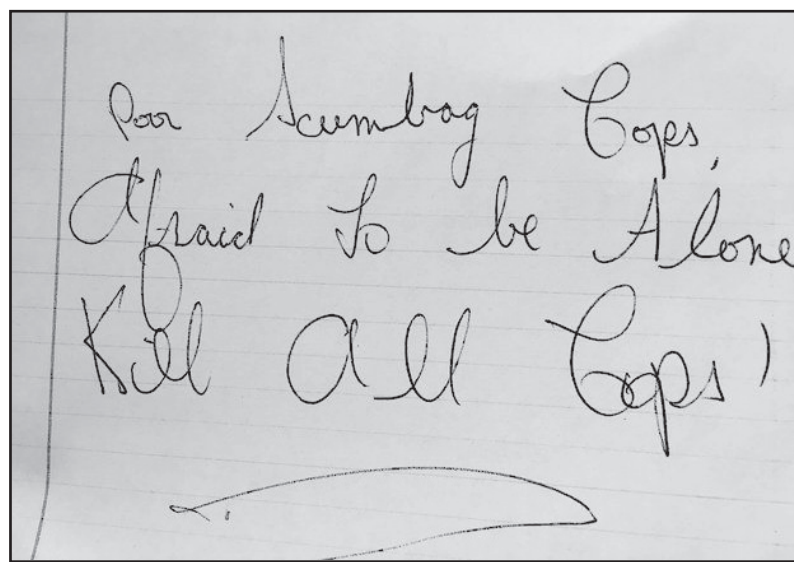 Poor Scumbag Cops,
Afraid To be Alone
Kill All Cops!